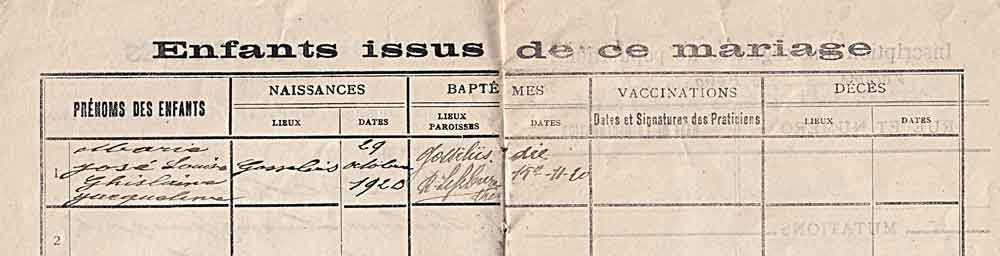 Enfants issus de ce mariage
PRÉNOMS DES ENFANTS
NAISSANCES
BAPTÊMES
VACCINATIONS
DÉCÈS
LIEUX
DATES
LIEUX
PAROISSES
DATES
Dates et Signatures des Praticiens
LIEUX
DATES
1
Marie
José Louise
Ghislaine
Jacqueline
Gosselies
29
octobre
1920
Gosselies
die
2
MUTATIONS